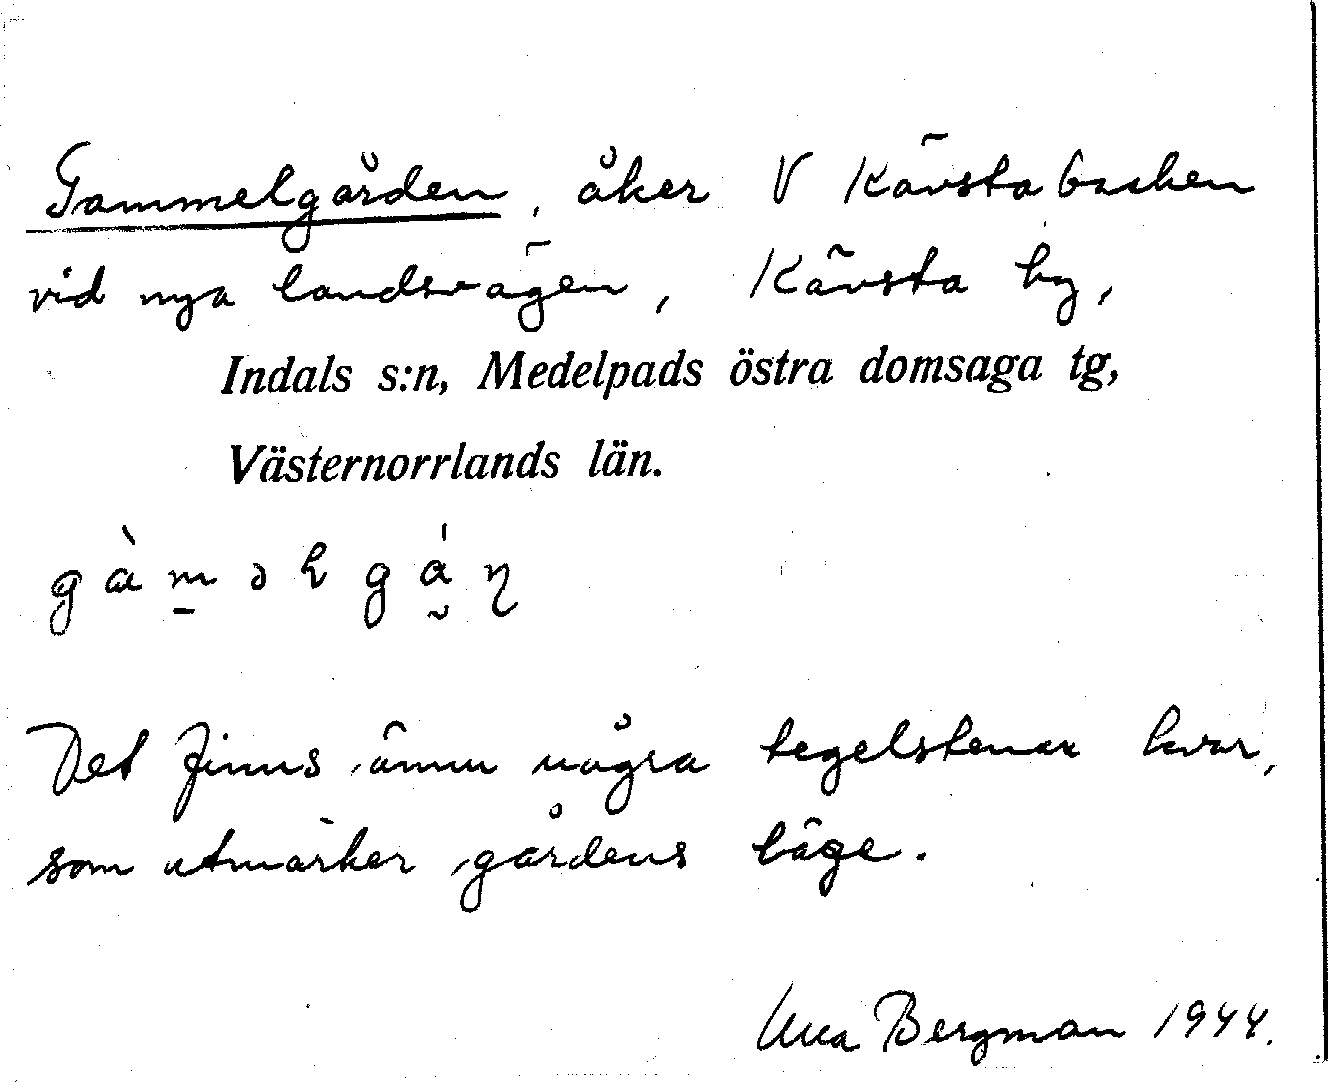 Gammelgården, åker V Kävstabacken
vid nya landsvägen, Kävsta by,
Indals s:n, Medelpads östra domsaga tg,
Västernorrlands län.
Det finns ännu några tegelstenar kvar,
som utmärker gårdens läge.
Bergman 1944.